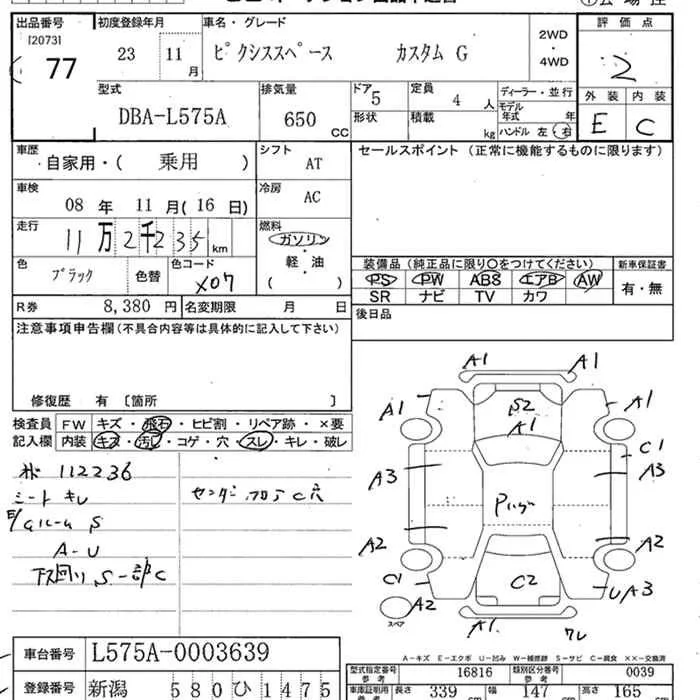 出品番号 初度登録年月 車名・グレード 評価点
[2073]
77 23 11月 ピクシススペース カスタム G 2WD・4WD 2
型式 排気量 ドア 5 定員 4人 ディーラー・並行 外装 内装
DBA-L575A 650 CC 形状 積載 kg モデル年式 年 E C
ハンドル 左・右
車歴 自家用・( 乗用 ) シフト AT セールスポイント (正常に機能するものに限ります)
車検 08年 11月(16日) 冷房 AC
走行 11万2千235km 燃料 ガソリン・軽・油 ( )
色 ブラック 色替 色コード X07 装備品 (純正品に限り○をつけてください) 新車保証書
PS PW ABS エアB AW 有・無
SR ナビ TV カワ
R券 8,380円 名変期限 月 日 後日品
注意事項申告欄 (不具合内容等は具体的に記入して下さい)
修復歴 有 [箇所 ]
検査員 FW キズ・飛石・ヒビ割・リペア跡・×要
記入欄 内装 キズ・汚レ・コゲ・穴・スレ・キレ・破レ
112236
シートキレ C穴
ルーム S
A-U
下回り S一部C
A1 A1
A1 S2 A1
A1
C1
A3 A3
A2 A2
C1 C2 UA3
A2
スペア
A1
A-キズ E-エクボ U-凹み W-補修跡 S-サビ C-腐食 ××-交換済
車台番号 L575A-0003639
型式指定番号 参考 16816 類別区分番号 参考 0039
登録番号 新潟 580ひ1475
車庫証明用 参考 長さ 339 幅 147 高さ 165